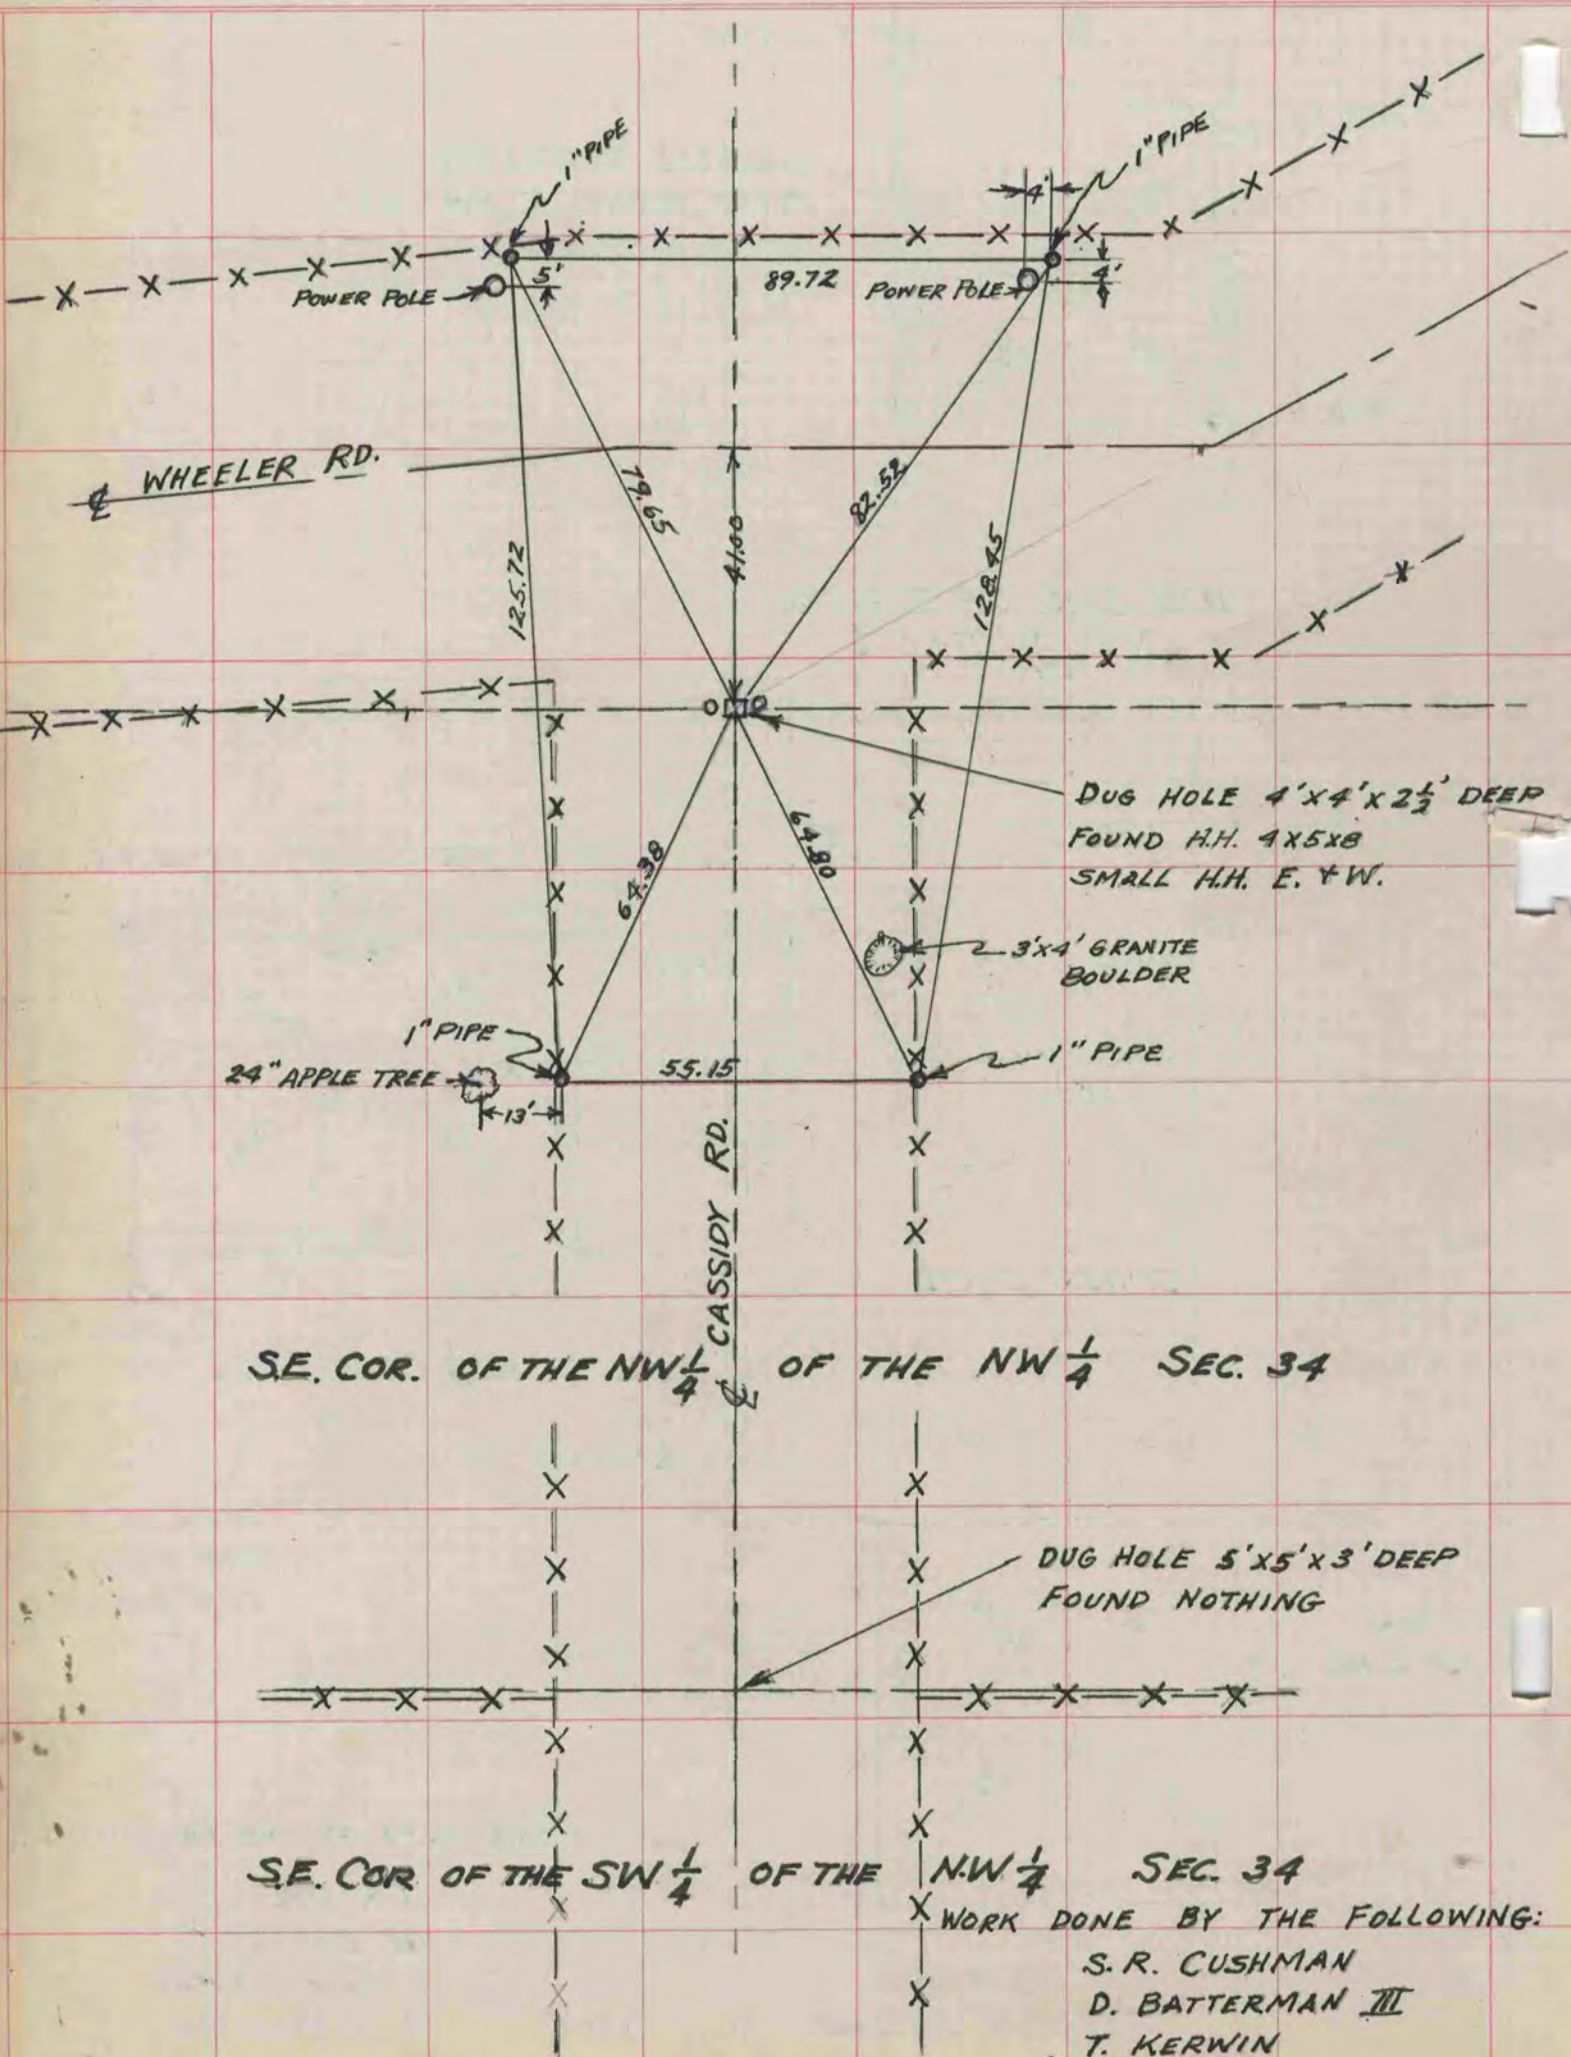 1" PIPE
1" PIPE
4'
5'
89.72
4'
POWER POLE
POWER POLE
℄ WHEELER RD.
79.65
82.52
41.00
125.72
128.45
DUG HOLE 4'X4'X2½' DEEP
FOUND H.H. 4X5X8
SMALL H.H. E. & W.
64.38
64.80
3'X4' GRANITE
BOULDER
1" PIPE
1" PIPE
24" APPLE TREE
55.15
13'
℄ CASSIDY RD.
S.E. COR. OF THE NW ¼ OF THE NW ¼ SEC. 34
DUG HOLE 5'X5'X3' DEEP
FOUND NOTHING
S.E. COR OF THE SW ¼ OF THE N.W ¼ SEC. 34
WORK DONE BY THE FOLLOWING:
S. R. CUSHMAN
D. BATTERMAN III
T. KERWIN